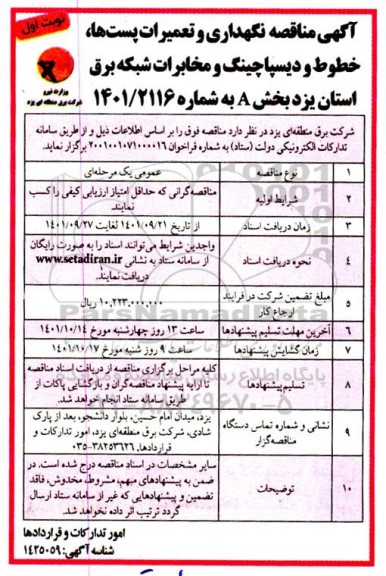 نوبت اول
آگهی مناقصه نگهداری و تعمیرات پست‌ها،
خطوط و دیسپاچینگ و مخابرات شبکه برق
استان یزد بخش A به شماره ۱۴۰۱/۲۱۱۶
وزارت نیرو
شرکت برق منطقه ای یزد
شرکت برق منطقه‌ای یزد در نظر دارد مناقصه فوق را بر اساس اطلاعات ذیل و از طریق سامانه
تدارکات الکترونیکی دولت (ستاد) به شماره فراخوان ۲۰۰۱۰۰۱۰۷۱۰۰۰۰۱۶ برگزار نماید.
۱ نوع مناقصه عمومی یک مرحله‌ای
۲ شرایط اولیه مناقصه‌گرانی که حداقل امتیاز ارزیابی کیفی را کسب
نمایند.
۳ زمان دریافت اسناد از تاریخ ۱۴۰۱/۰۹/۲۱ لغایت ۱۴۰۱/۰۹/۲۷
۴ نحوه دریافت اسناد واجدین شرایط می‌توانند اسناد را به صورت رایگان
از سامانه ستاد به نشانی www.setadiran.ir
دریافت نمایند.
۵ مبلغ تضمین شرکت در فرایند
ارجاع کار ۱۰,۲۲۳,۰۰۰,۰۰۰ ریال
۶ آخرین مهلت تسلیم پیشنهادها ساعت ۱۳ روز چهارشنبه مورخ ۱۴۰۱/۱۰/۱۴
۷ زمان گشایش پیشنهادها ساعت ۹ روز شنبه مورخ ۱۴۰۱/۱۰/۱۷
۸ تسلیم پیشنهادها کلیه مراحل برگزاری مناقصه از دریافت اسناد مناقصه
تا ارایه پیشنهاد مناقصه‌گران و بازگشایی پاکات از
طریق سامانه ستاد انجام خواهد شد.
۹ نشانی و شماره تماس دستگاه
مناقصه‌گزار یزد، میدان امام حسین، بلوار دانشجو، بعد از پارک
شادی، شرکت برق منطقه‌ای یزد، امور تدارکات و
قراردادها، ۳۸۲۵۳۶۲۶-۰۳۵
۱۰ توضیحات سایر مشخصات در اسناد مناقصه درج شده است. در
ضمن به پیشنهادهای مبهم، مشروط، مخدوش، فاقد
تضمین و پیشنهادهایی که غیر از سامانه ستاد ارسال
گردد ترتیب اثر داده نخواهد شد.
امور تدارکات و قراردادها
شناسه آگهی: ۱۴۲۵۰۵۹